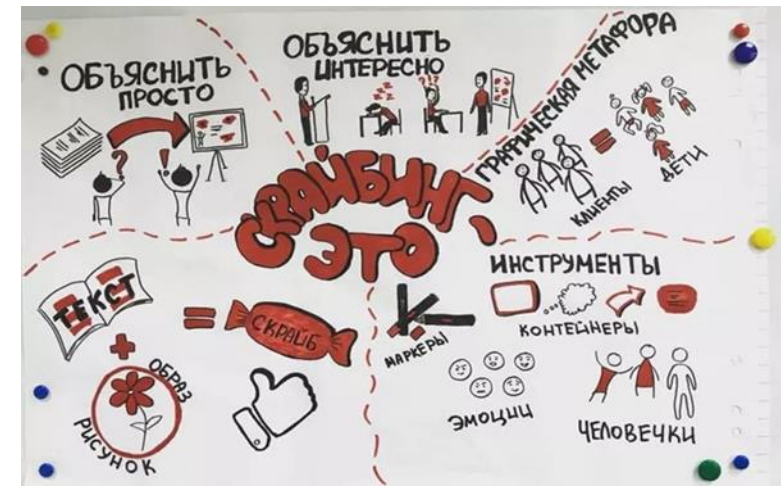 ОБЪЯСНИТЬ
ПРОСТО
?
!
ОБЪЯСНИТЬ
ИНТЕРЕСНО
zzz
!?!
ГРАФИЧЕСКАЯ МЕТАФОРА
КЛИЕНТЫ
=
ДЕТИ
СКРАЙБИНГ,
ЭТО
ТЕКСТ
+
ОБРАЗ
РИСУНОК
=
СКРАЙБ
ИНСТРУМЕНТЫ
МАРКЕРЫ
КОНТЕЙНЕРЫ
ЭМОЦИИ
ЧЕЛОВЕЧКИ